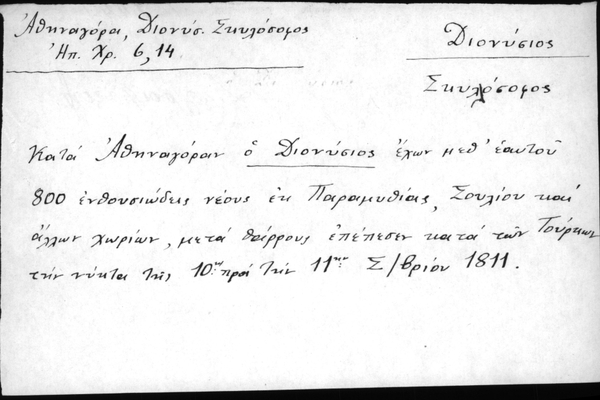 Ἀθηναγόρα, Διονύσ. Σκυλόσοφος
Ἠπ. Χρ. 6, 14.
Διονύσιος
Σκυλόσοφος
Κατά Ἀθηναγόραν ὁ Διονύσιος ἔχων μεθ' ἑαυτοῦ
800 ἐνθουσιώδεις νέους ἐκ Παραμυθίας, Σουλίου καί
ἄλλων χωρίων, μετά θάρρους ἐπέπεσεν κατά τῶν Τούρκων
τήν νύκτα τῆς 10ης πρό τήν 11ην Σ/βρίου 1811.